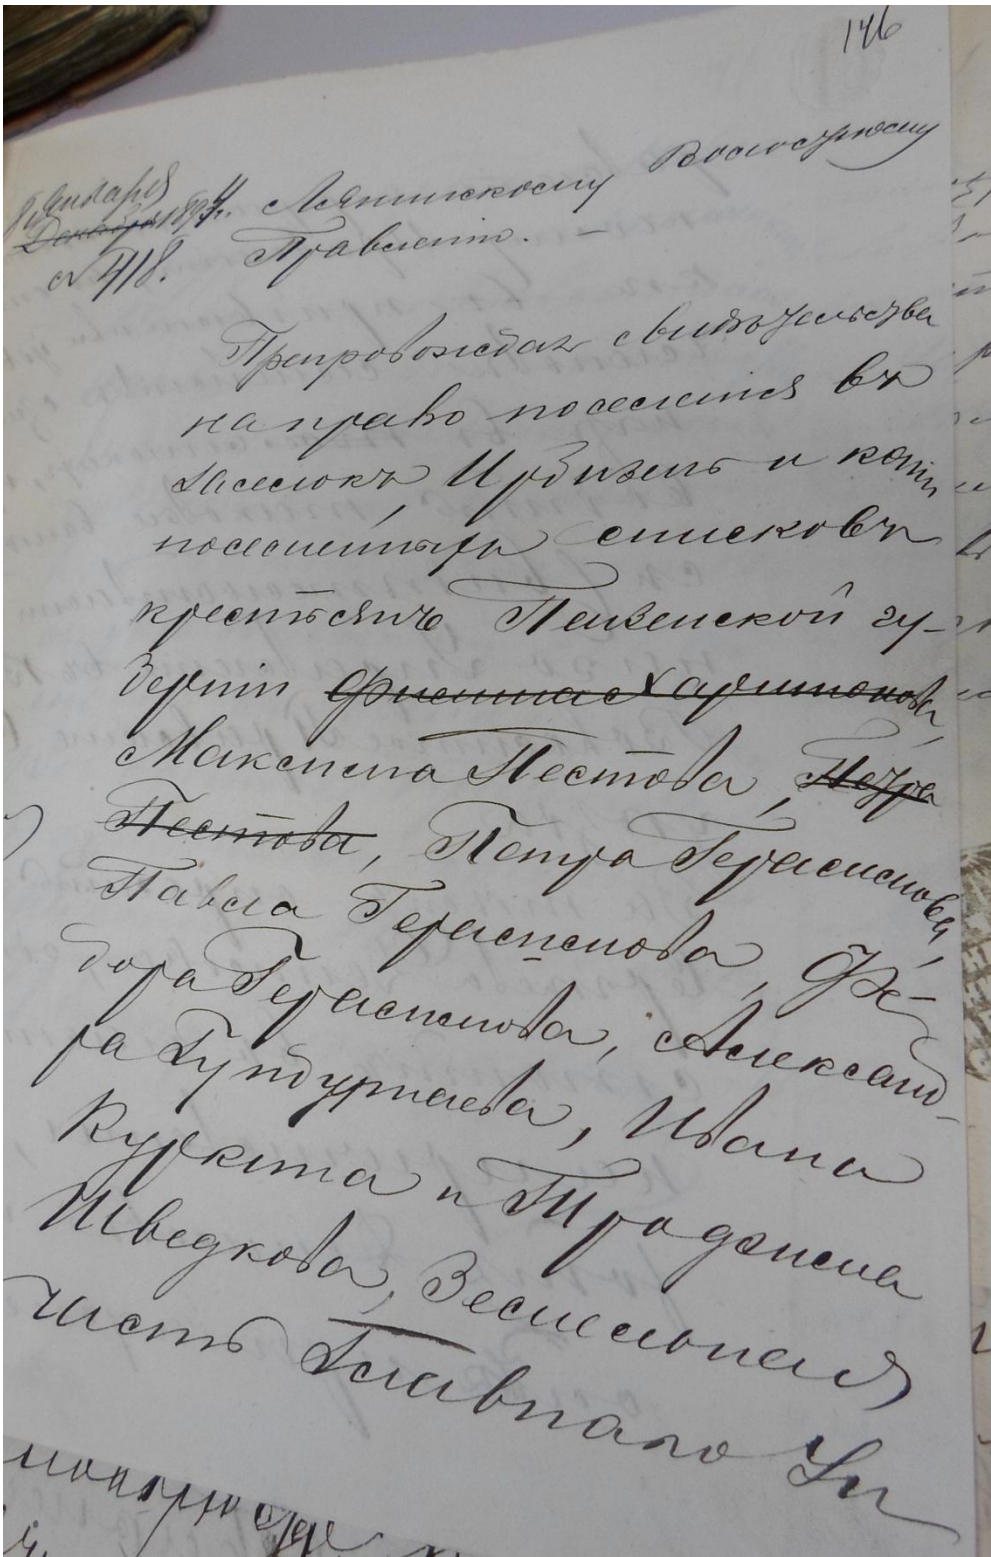 146
8 Января
Декабря 1897 г.
№ 418.
Лялинскому Волостному
Правленію. —
Препровождая свидѣтельства
на право поселенія въ
заселокъ, Ирбизень и копіи
посемейныхъ списковъ
крестьянъ Пензенской гу-
берніи Филиппа Харитонова,
Максима Пестова, Петра
Пестова, Петра Герасимова,
Павла Герасимова, Фе-
дора Герасимова, Александ-
ра Гундураева, Ивана
Куркина и Трофима
Шведкова, Земельная
часть Главнаго Уп